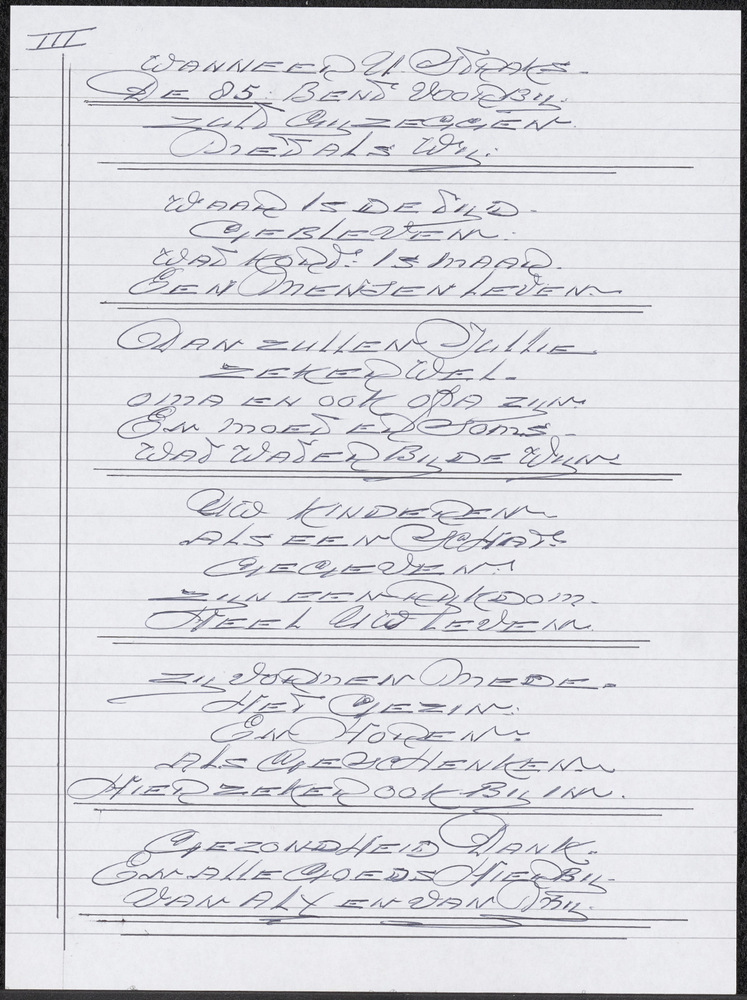 III
WANNEER U STRAKS.
DE 85: BENT VOORBIJ.
ZULT GIJ ZEGGEN
NET ALS WIJ:
WAAR IS DE TIJD.
GEBLEVEN.
WAT KORT: IS MAAR.
EEN MENSEN LEVEN.
DAN ZULLEN JULLIE.
ZEKER WEL.
OMA EN OOK OPA ZIJN.
EN MOET ER SOMS.
WAT WATER BIJ DE WIJN.
UW KINDEREN.
ALS EEN SCHAT:
GEGEVEN!
ZIJN EEN RIJKDOM.
HEEL UW LEVEN.
ZIJ VORMEN MEDE.
HET GEZIN:
EN HOREN.
ALS GESCHENKEN.
HIER ZEKER OOK BIJ IN.
GEZONDHEID DANK.
EN ALLE GOEDS HIERBIJ.
VAN ALY EN VAN